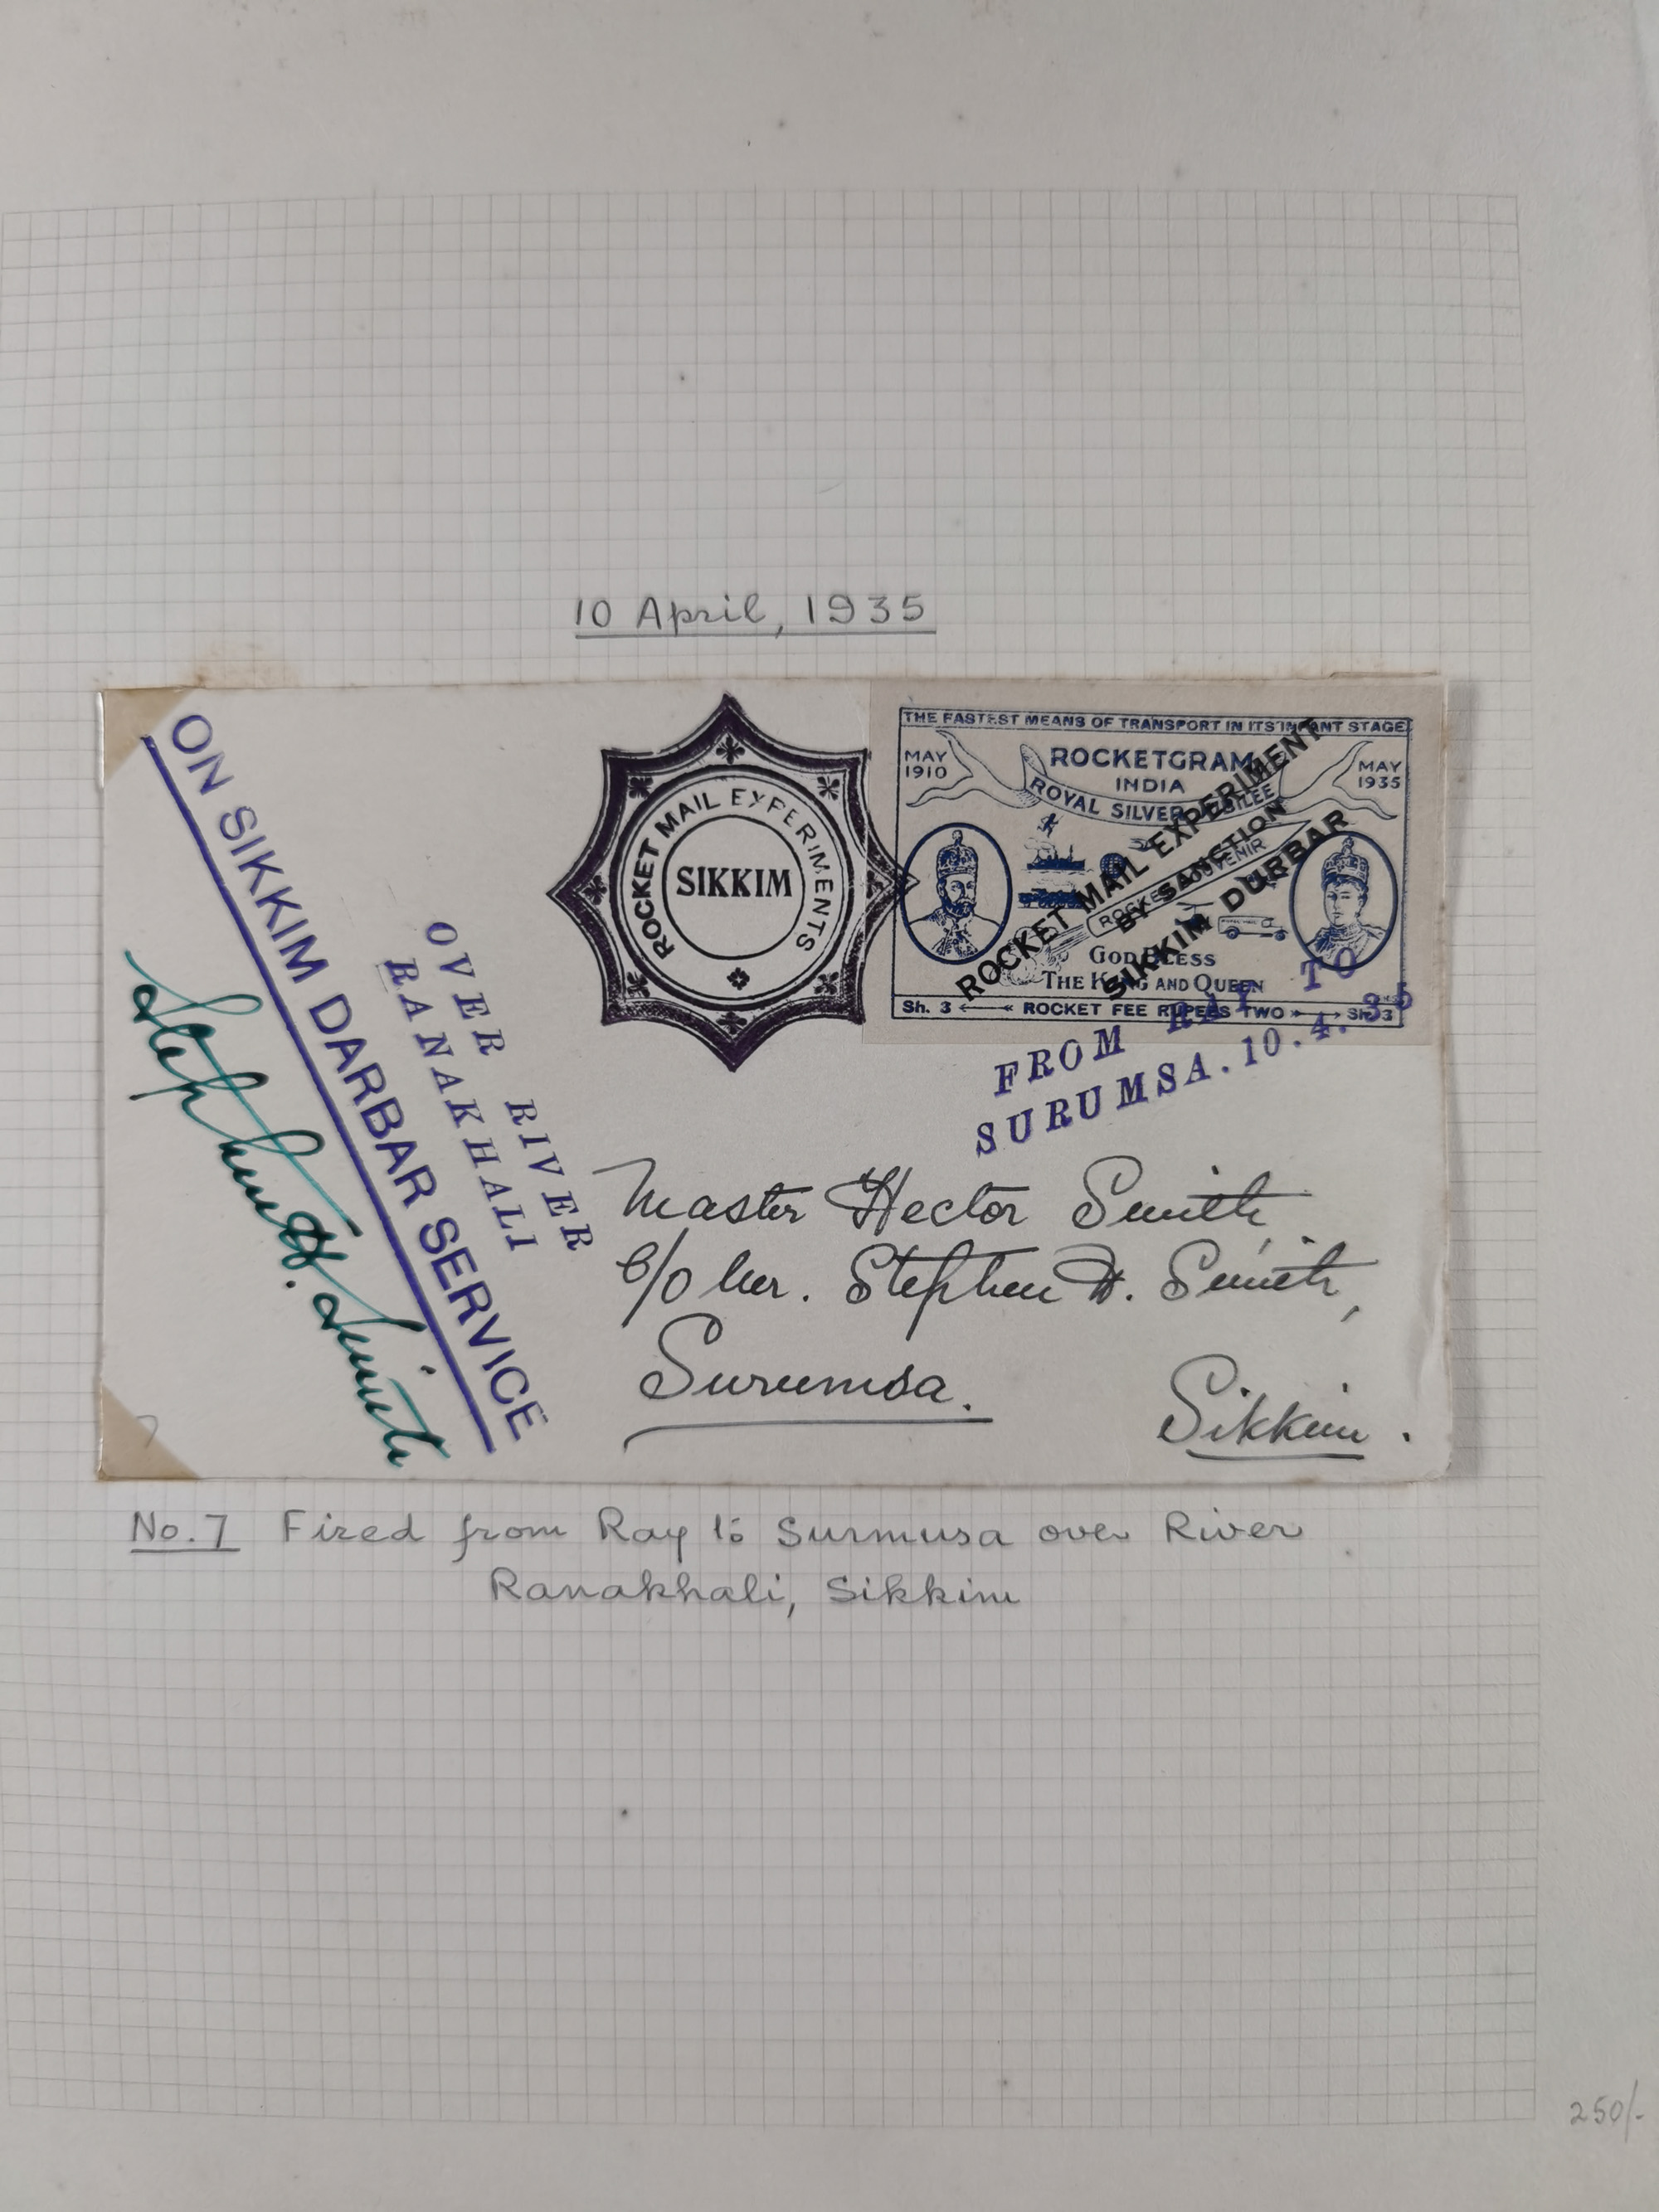 10 April, 1935
ON SIKKIM DARBAR SERVICE
Stephen H. Smith
OVER RIVER
RANAKHALI
ROCKET MAIL EXPERIMENTS
SIKKIM
THE FASTEST MEANS OF TRANSPORT IN ITS INFANT STAGE
MAY 1910
ROCKETGRAM
INDIA
ROYAL SILVER JUBILEE
MAY 1935
ROCKET SOUVENIR
GOD BLESS
THE KING AND QUEEN
Sh. 3 ROCKET FEE RUPEES TWO Sh. 3
ROCKET MAIL EXPERIMENT
BY SANCTION
SIKKIM DURBAR
FROM RAY TO
SURUMSA. 10. 4. 35
Master Hector Smith,
C/o Mr. Stephen H. Smith,
Surumsa.
Sikkim.
No. 7 Fired from Ray to Surmusa over River
Ranakhali, Sikkim
250/-